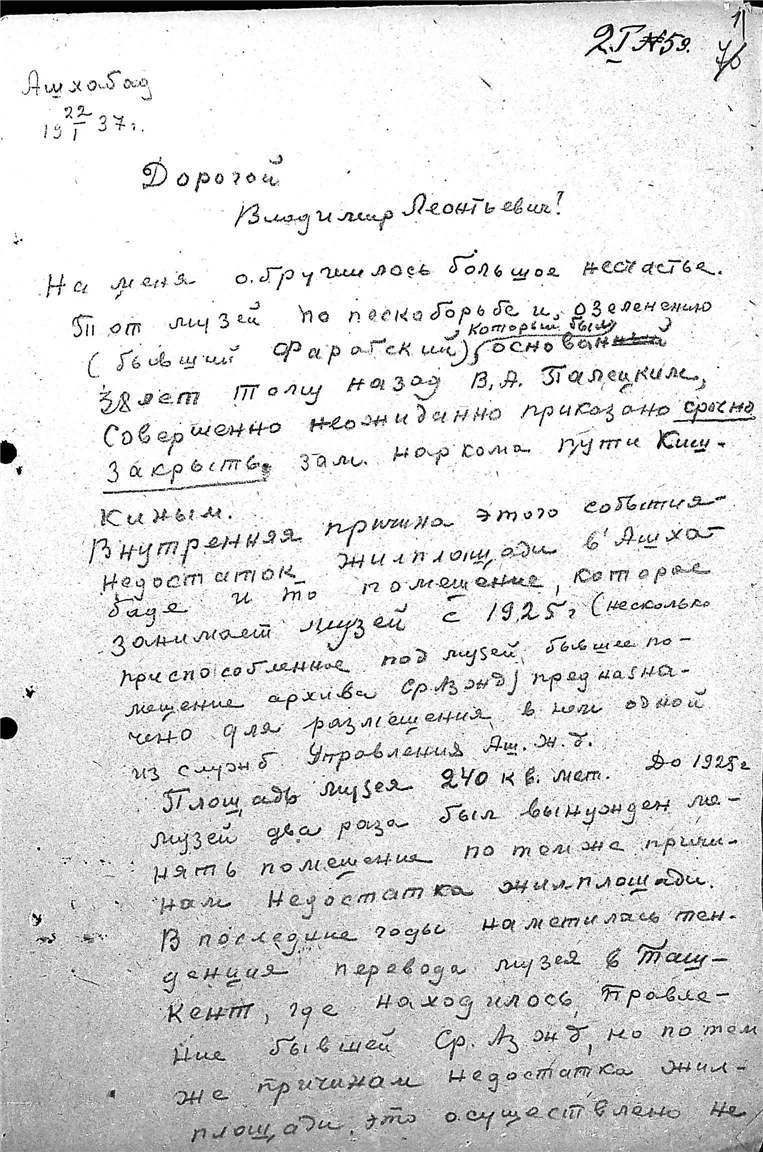 1
2 I N 59.
Ашхабад
19 22/I 37г.
Дорогой
Владимир Леонтьевич!
На меня обрушилось большое несчастье.
Тот музей по пескоборьбе и озеленению
который был
(бывший Фарабский), основанный
38 лет тому назад В. А. Палецким,
совершенно неожиданно приказано срочно
закрыть зам. наркома пути Киш-
киным.
Внутренняя причина этого события-
недостаток жилплощади в Ашха-
баде и то помещение, которое
занимает музей с 1925 г (несколько
приспособленное под музей бывшее по-
мещение архива Ср. Аз жд) предназна-
чено для размещения в нем одной
из служб Управления Аш. ж. д.
Площадь музея 240 кв. мет. До 1925 г
музей два раза был вынужден ме-
нять помещение по тем же причи-
нам недостатка жилплощади.
В последние годы наметилась тен-
денция перевода музея в Таш-
кент, где находилось Правле-
ние бывшей Ср. Аз жд, но по тем
же причинам недостатка жил-
площади, это осуществлено не